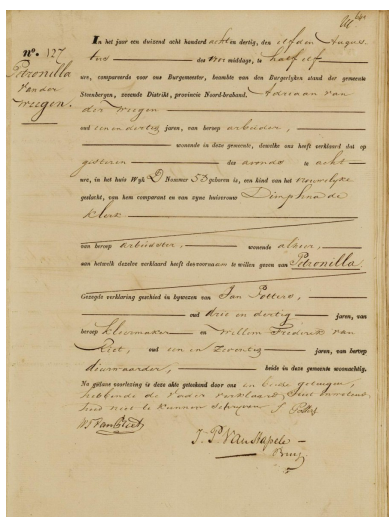 No. 127
Petronilla
van der
Weegen.
In het jaar een duizend acht honderd acht en dertig, den elfden Augus-
tus des voor middags, te half elf
ure, compareerde voor ons Burgemeester, beambte van den Burgerlyken stand der gemeente
Steenbergen, zevende Distrikt, provincie Noord-braband, Adriaan van
der Weegen
oud een en dertig jaren, van beroep arbeider,
wonende in deze gemeente, dewelke ons heeft verklaard dat op
gisteren des avonds te acht
ure, in het huis Wyk D Nommer 53 geboren is, een kind van het vrouwelyke
geslacht, van hem comparant en van zyne huisvrouw Dimphna de
Klerk
van beroep arbeidster, wonende alhier,
aan hetwelk dezelve verklaard heeft den voornaam te willen geven van Petronilla.
Gezegde verklaring geschied in bywezen van Jan Potters,
oud drie en dertig jaren, van
beroep kleermaker en Willem Frederik van
Riet, oud een en zeventig jaren, van beroep
deurwaarder, beide in deze gemeente woonachtig.
Na gedane voorlezing is deze akte geteekend door ons en beide getuigen,
hebbende de vader verklaard
niet te kunnen schryven J. Potters